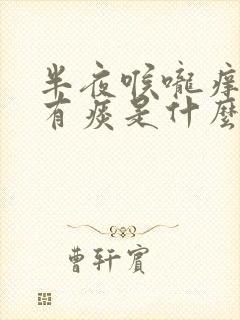 半夜喉嚨痒
有痰是什麼
曹轩宾